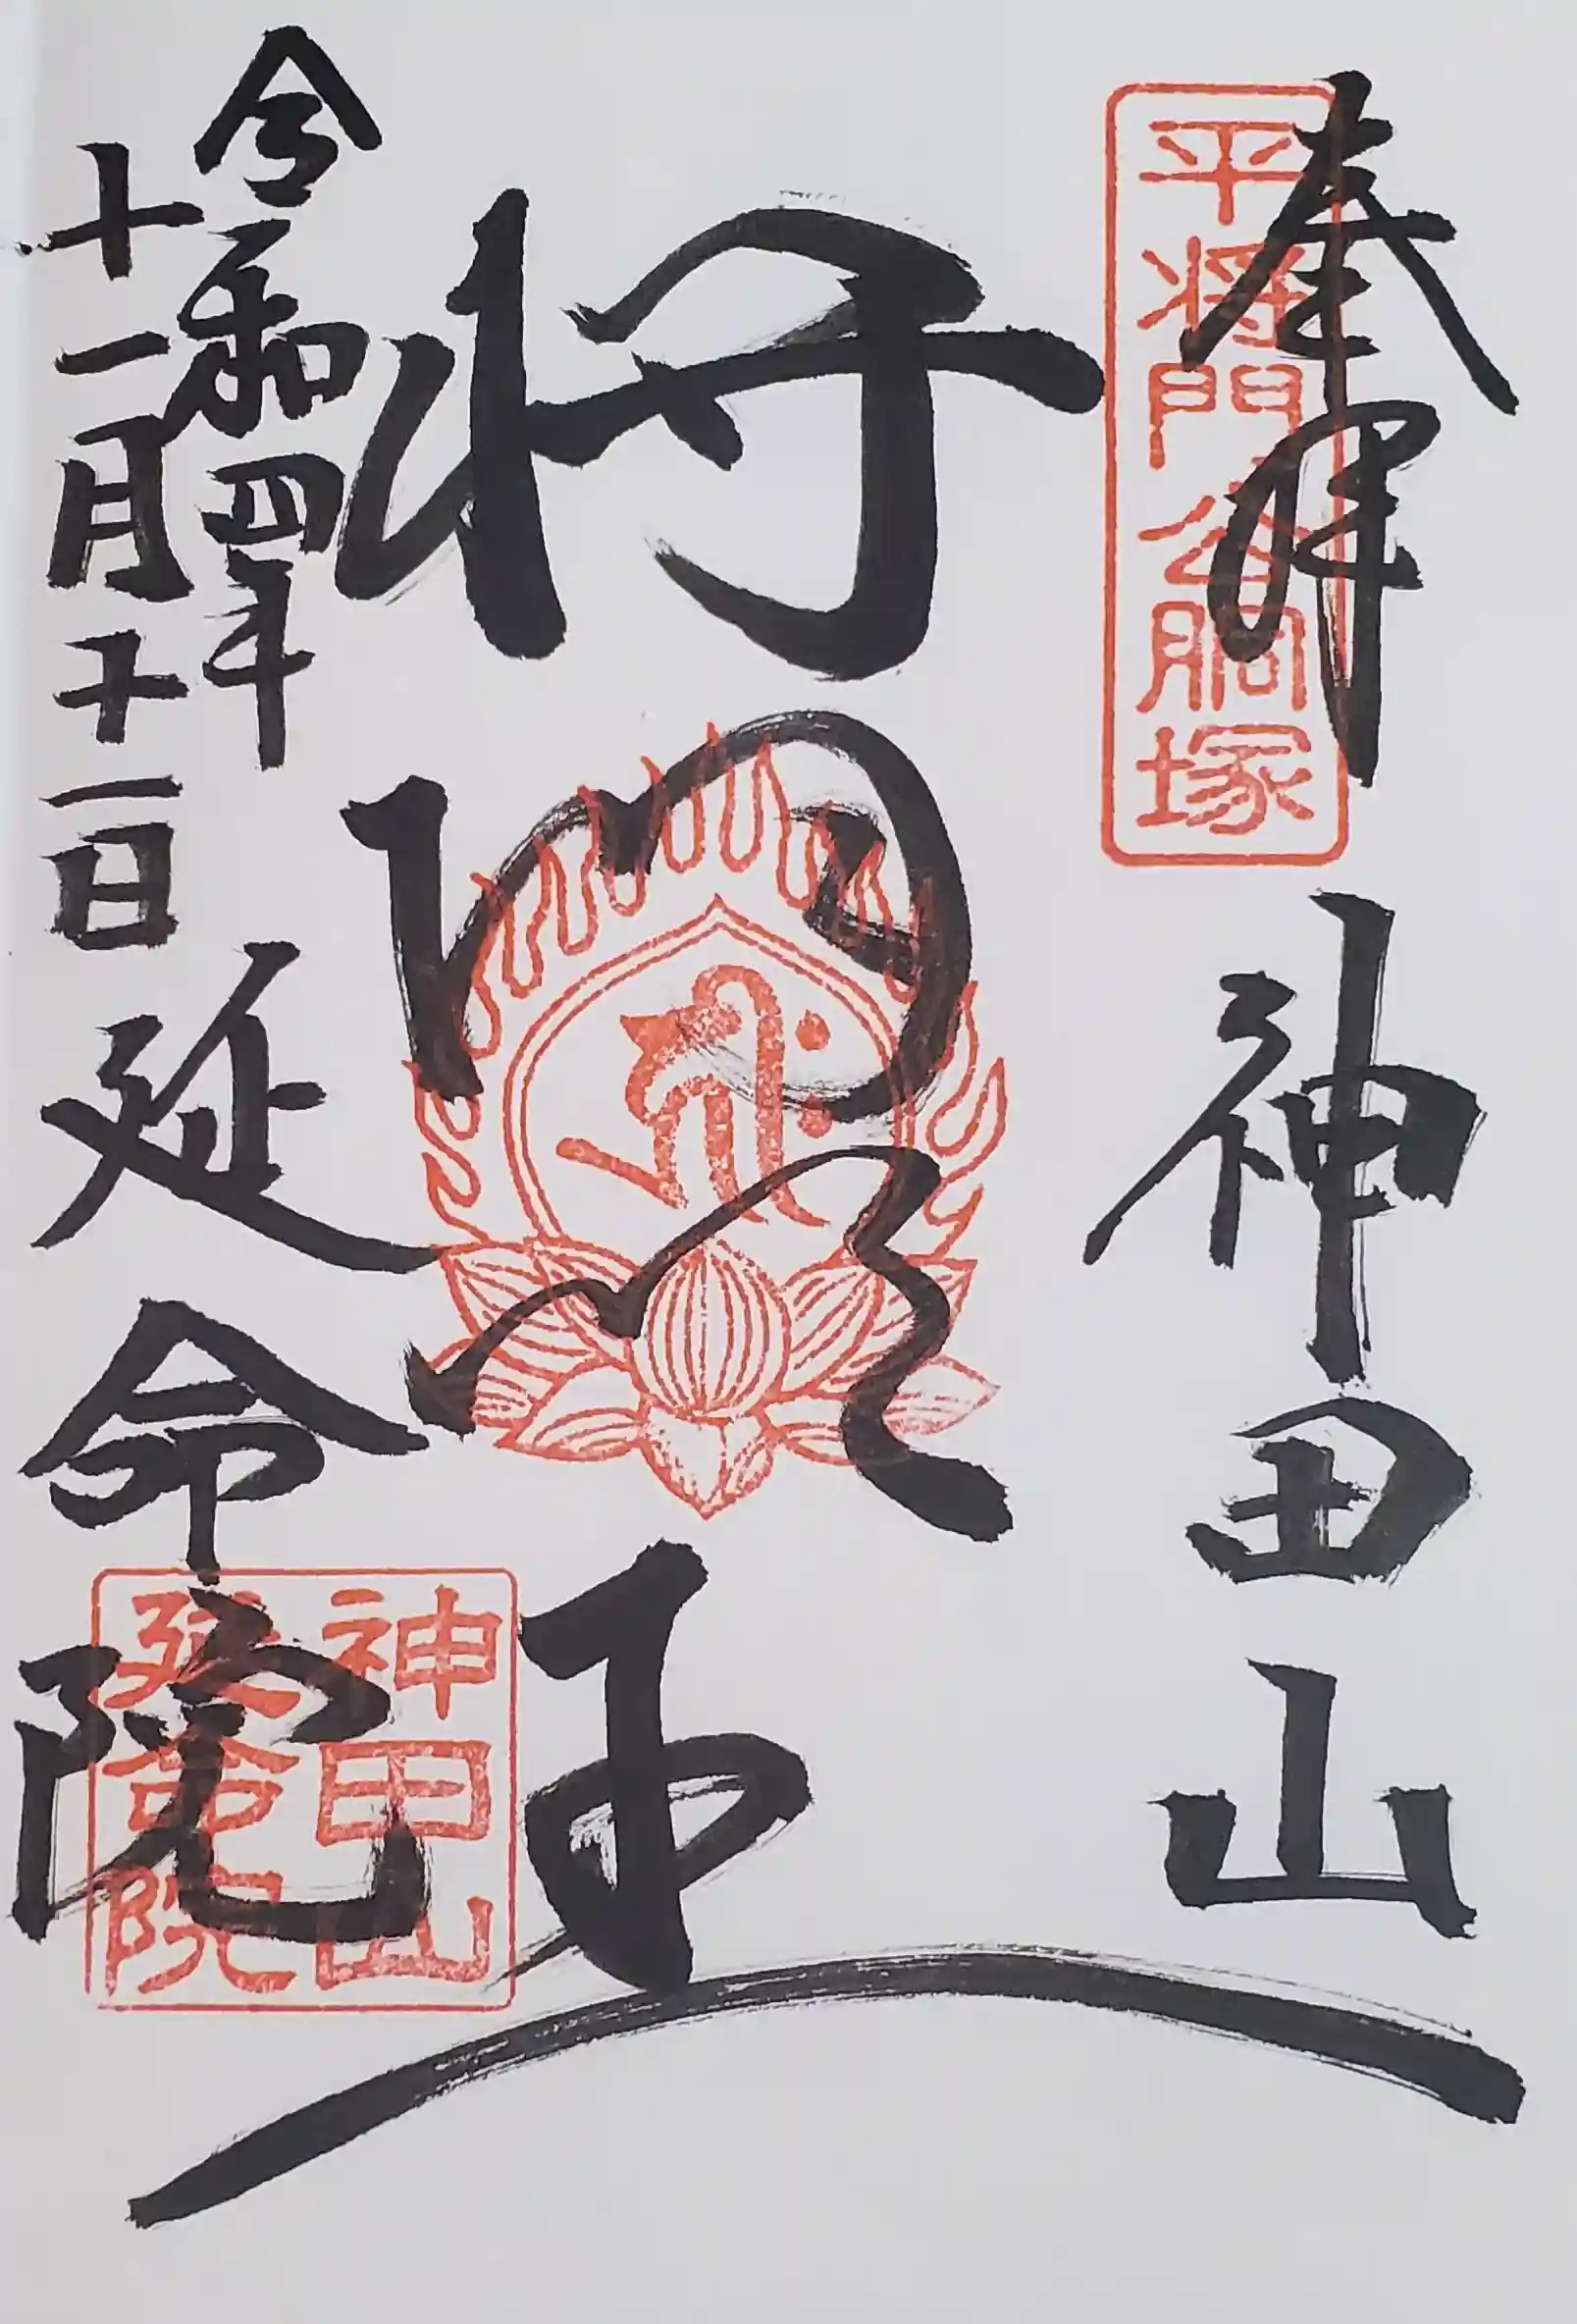 奉拝
平将門公胴塚
神田山
将門公
令和四年
十一月十一日
延命院
神田山
延命院